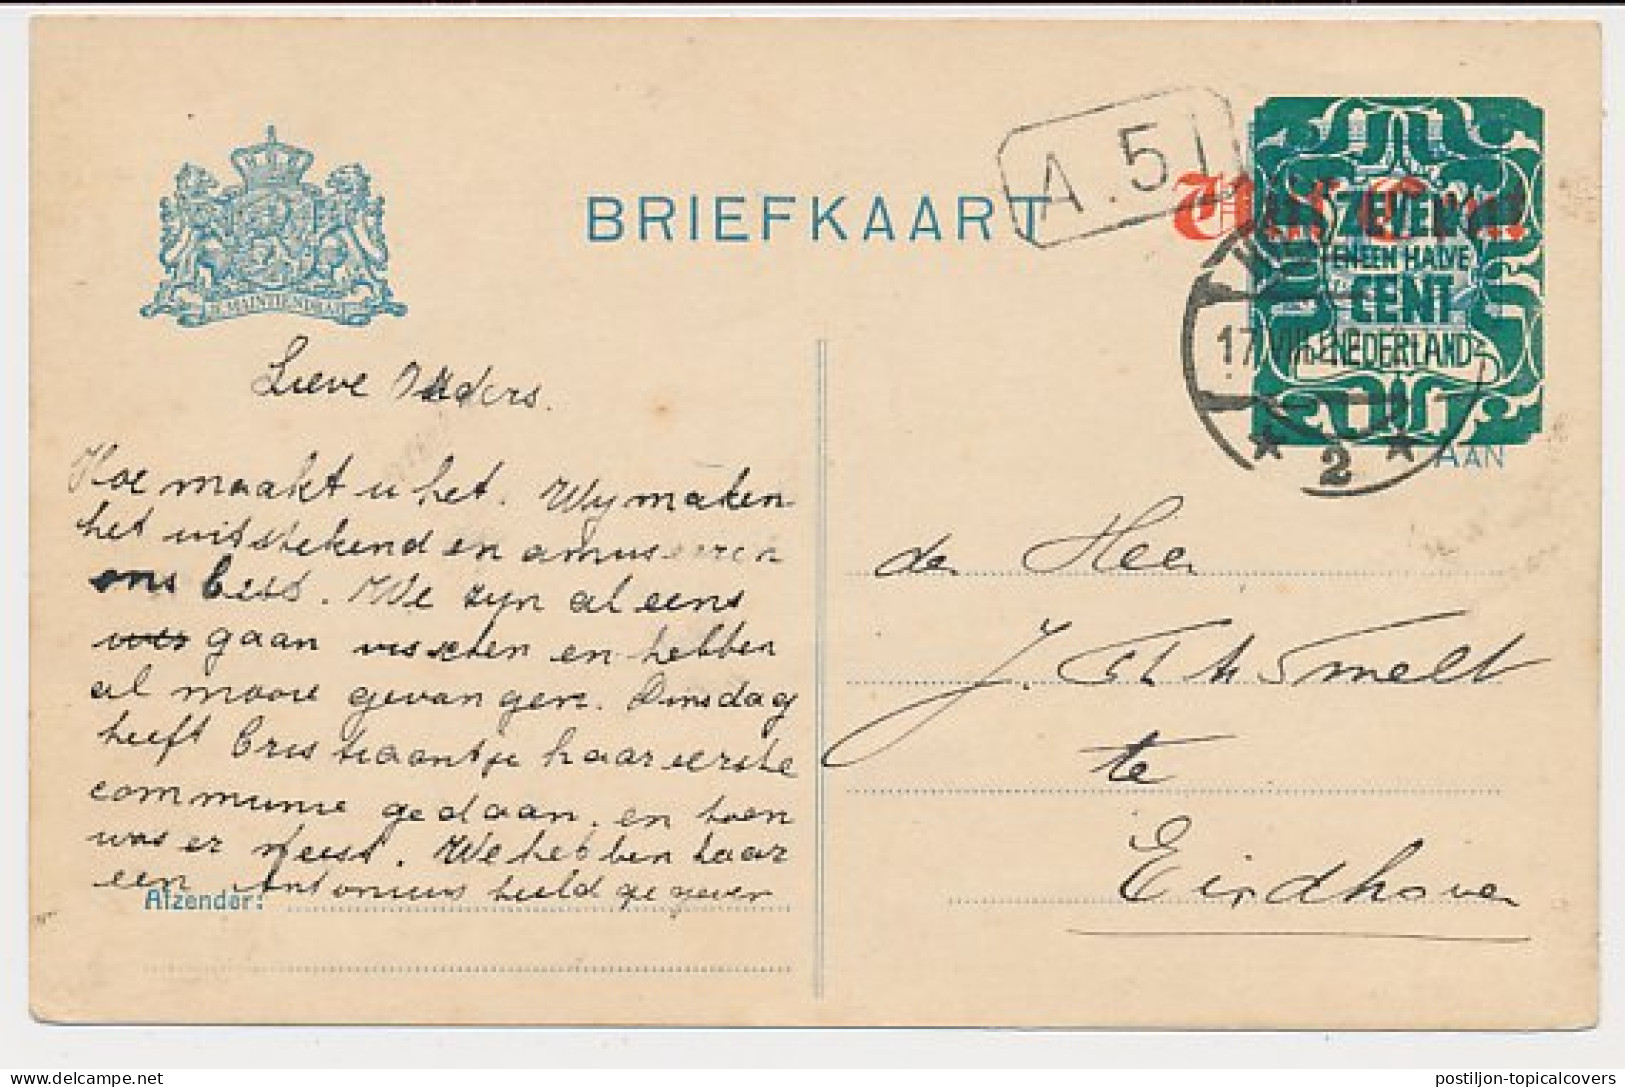 BRIEFKAART
A.51
Vijf Cent
ZEVEN
EN EEN HALVE
CENT
NEDERLAND
17 VIII
2
AAN
JE MAINTIENDRAI
Lieve Ouders.
Hoe maakt u het. Wij maken
het uitstekend en amuseeren
ons best. We zijn al eens
gaan visschen en hebben
al mooie gevangen. Dinsdag
heeft Cristiaantje haar eerste
communie gedaan, en toen
was er feest. We hebben haar
een Antonius beeld gegeven
Afzender:
de Heer
J. Smelt
te
Eindhoven
delcampe.net
postiljon-topicalcovers